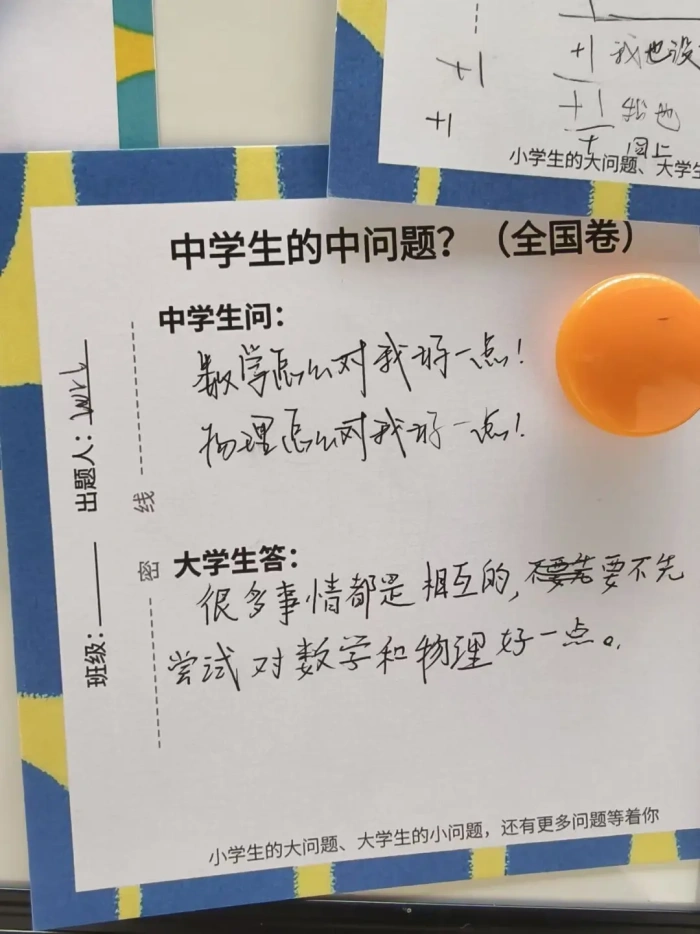 +1
+1
+1 我也没
+1 我也
+ 同上
小学生的大问题、大学生
中学生的中问题？（全国卷）
中学生问：
数学怎么对我好一点！
物理怎么对我好一点！
出题人：
线
密
班级：
大学生答：
很多事情都是相互的，要不先
尝试对数学和物理好一点。
小学生的大问题、大学生的小问题，还有更多问题等着你